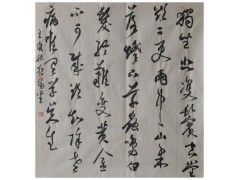 獨坐悲雙鬢空堂
欲二更雨中山果
落燈下草蟲鳴白
髮終難變黃金
不可成欲知除老
病唯有學無生